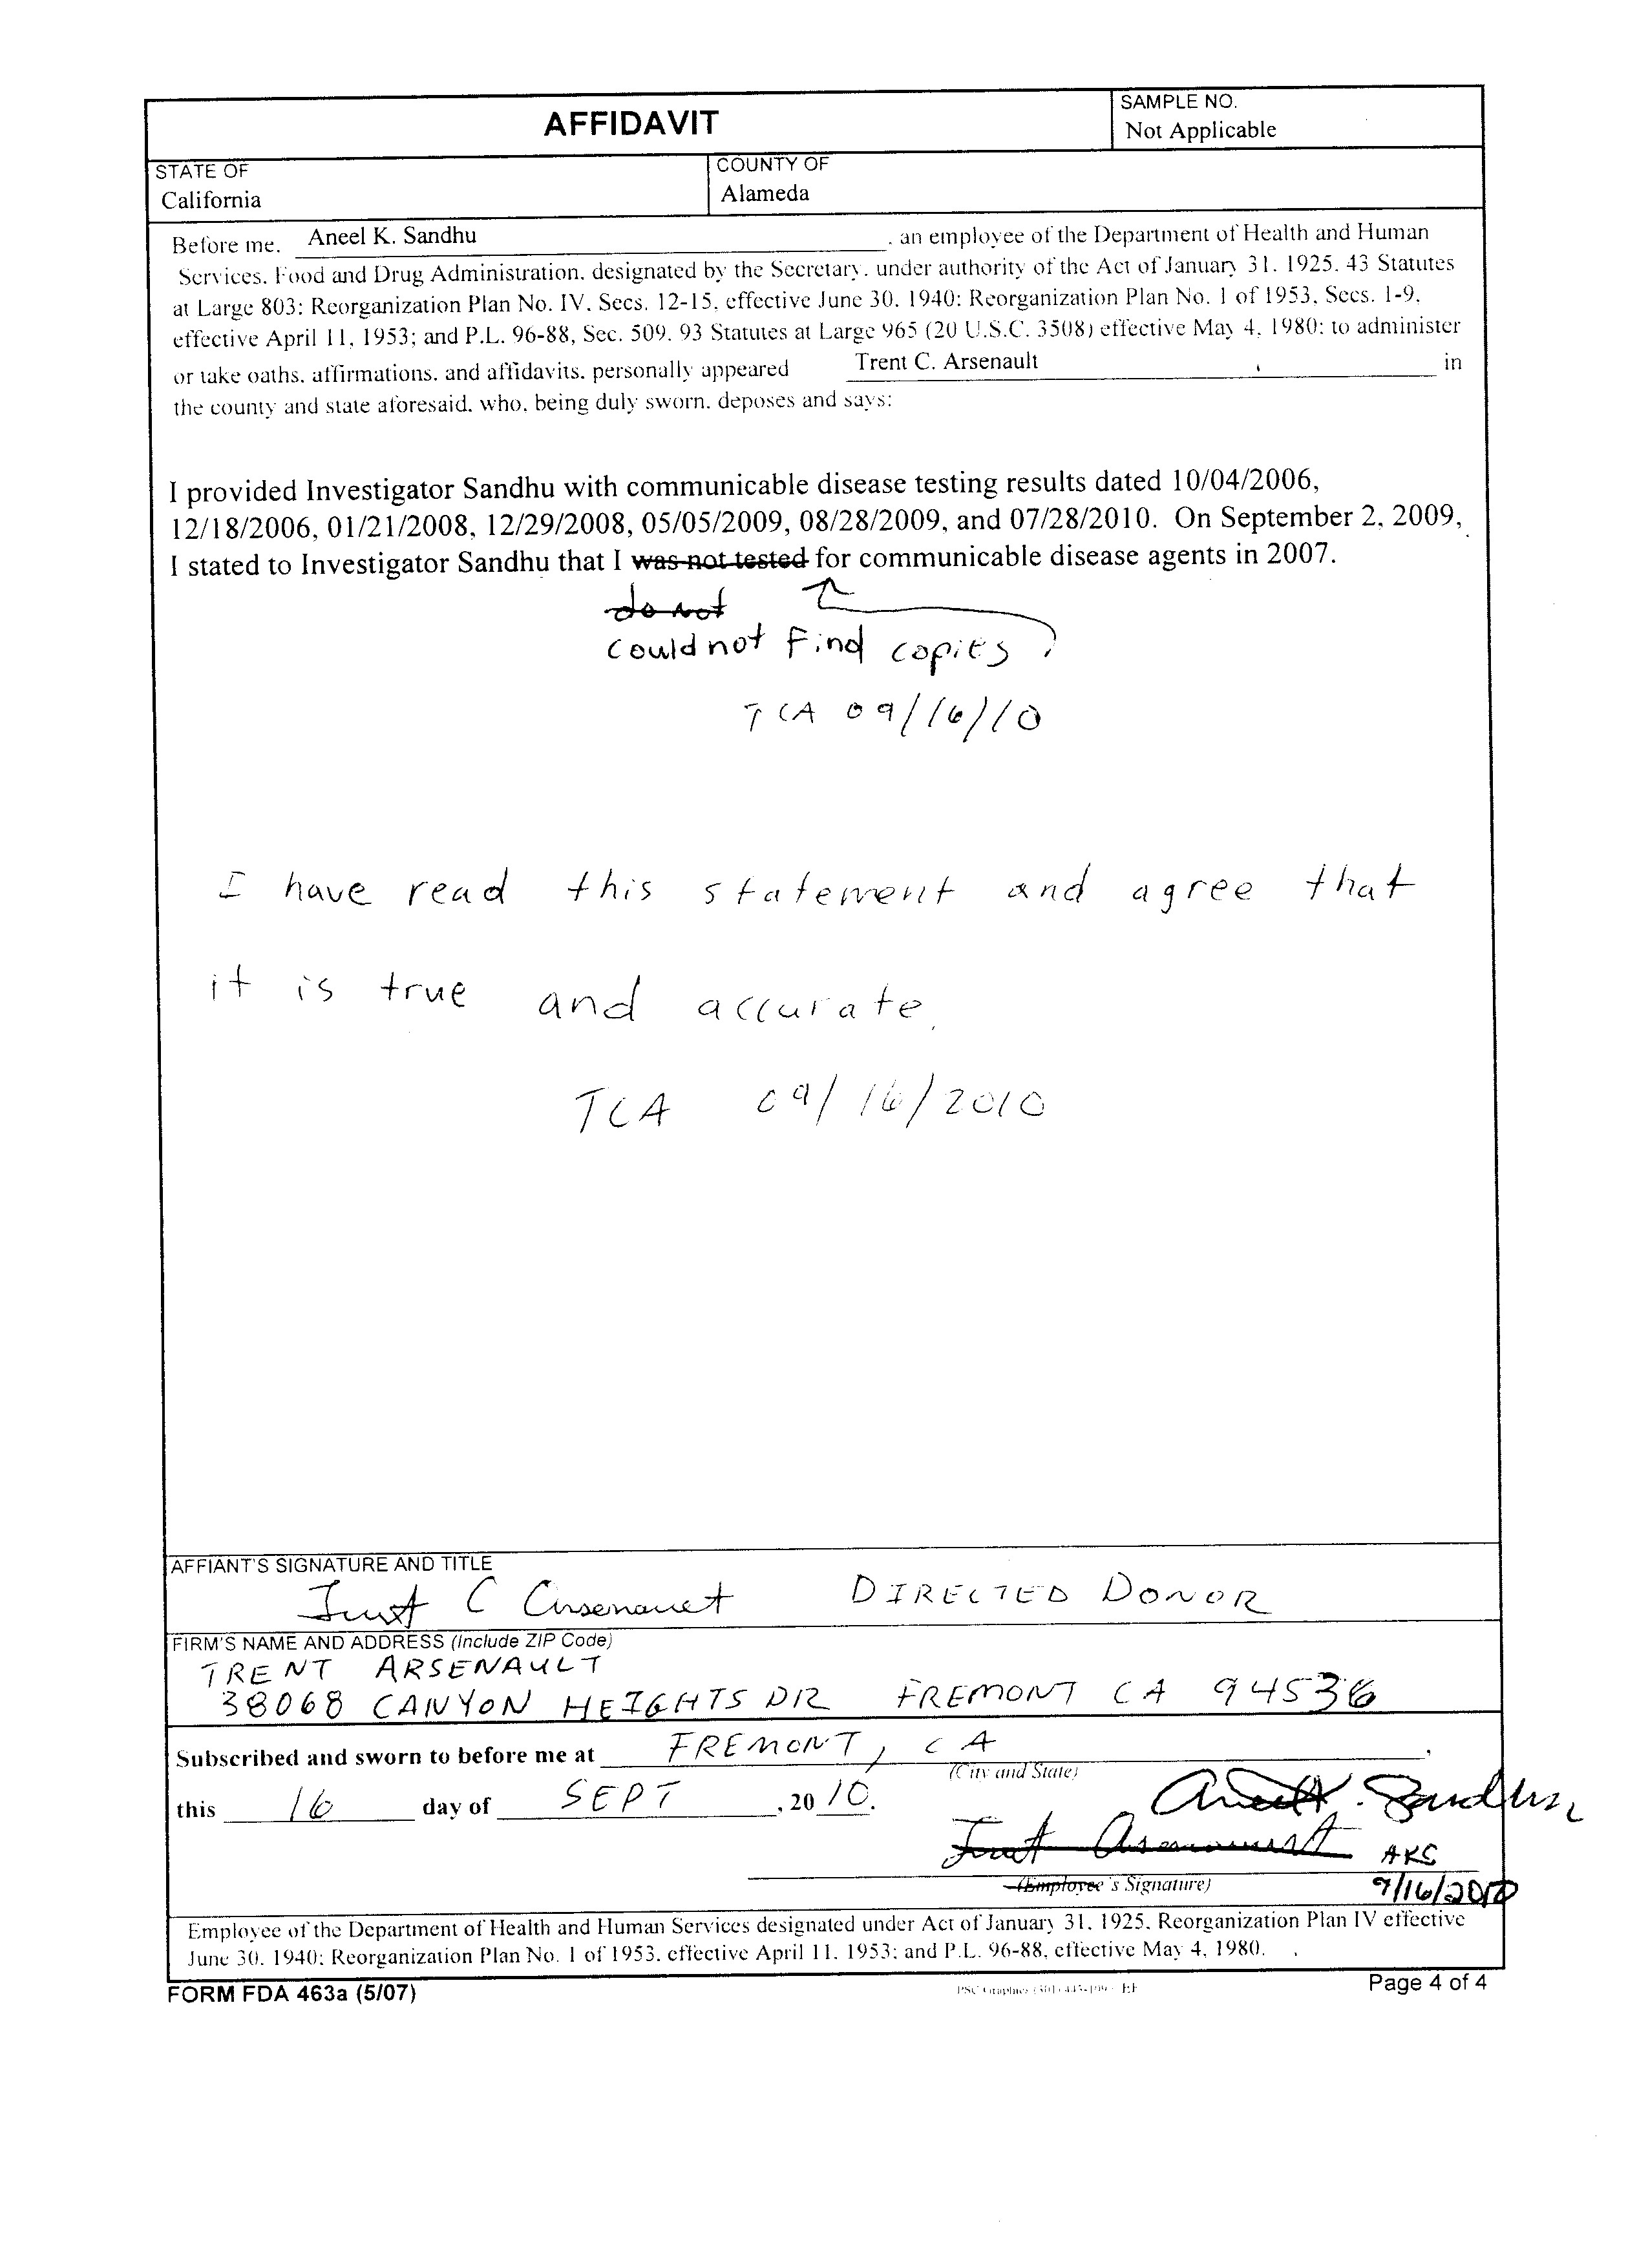 AFFIDAVIT
SAMPLE NO.
Not Applicable
STATE OF
California
COUNTY OF
Alameda
Before me, Aneel K. Sandhu, an employee of the Department of Health and Human
Services, Food and Drug Administration, designated by the Secretary, under authority of the Act of January 31, 1925, 43 Statutes
at Large 803; Reorganization Plan No. IV, Secs. 12-15, effective June 30, 1940; Reorganization Plan No. 1 of 1953, Secs. 1-9,
effective April 11, 1953; and P.L. 96-88, Sec. 509, 93 Statutes at Large 965 (20 U.S.C. 3508) effective May 4, 1980; to administer
or take oaths, affirmations, and affidavits, personally appeared Trent C. Arsenault, in
the county and state aforesaid, who, being duly sworn, deposes and says:
I provided Investigator Sandhu with communicable disease testing results dated 10/04/2006,
12/18/2006, 01/21/2008, 12/29/2008, 05/05/2009, 08/28/2009, and 07/28/2010. On September 2, 2009,
I stated to Investigator Sandhu that I was not tested for communicable disease agents in 2007.
do not
could not find copies
TCA 09/16/10
I have read this statement and agree that
it is true and accurate.
TCA 09/16/2010
AFFIANT'S SIGNATURE AND TITLE
Trent C Arsenault DIRECTED DONOR
FIRM'S NAME AND ADDRESS (Include ZIP Code)
TRENT ARSENAULT
38068 CANYON HEIGHTS DR FREMONT CA 94536
Subscribed and sworn to before me at FREMONT, CA,
(City and State)
this 16 day of SEPT, 2010.
Aneel K. Sandhu
Trent Arsenault AKS
(Employee's Signature) 9/16/2010
Employee of the Department of Health and Human Services designated under Act of January 31, 1925, Reorganization Plan IV effective
June 30, 1940; Reorganization Plan No. 1 of 1953, effective April 11, 1953; and P.L. 96-88, effective May 4, 1980.
FORM FDA 463a (5/07)
Page 4 of 4